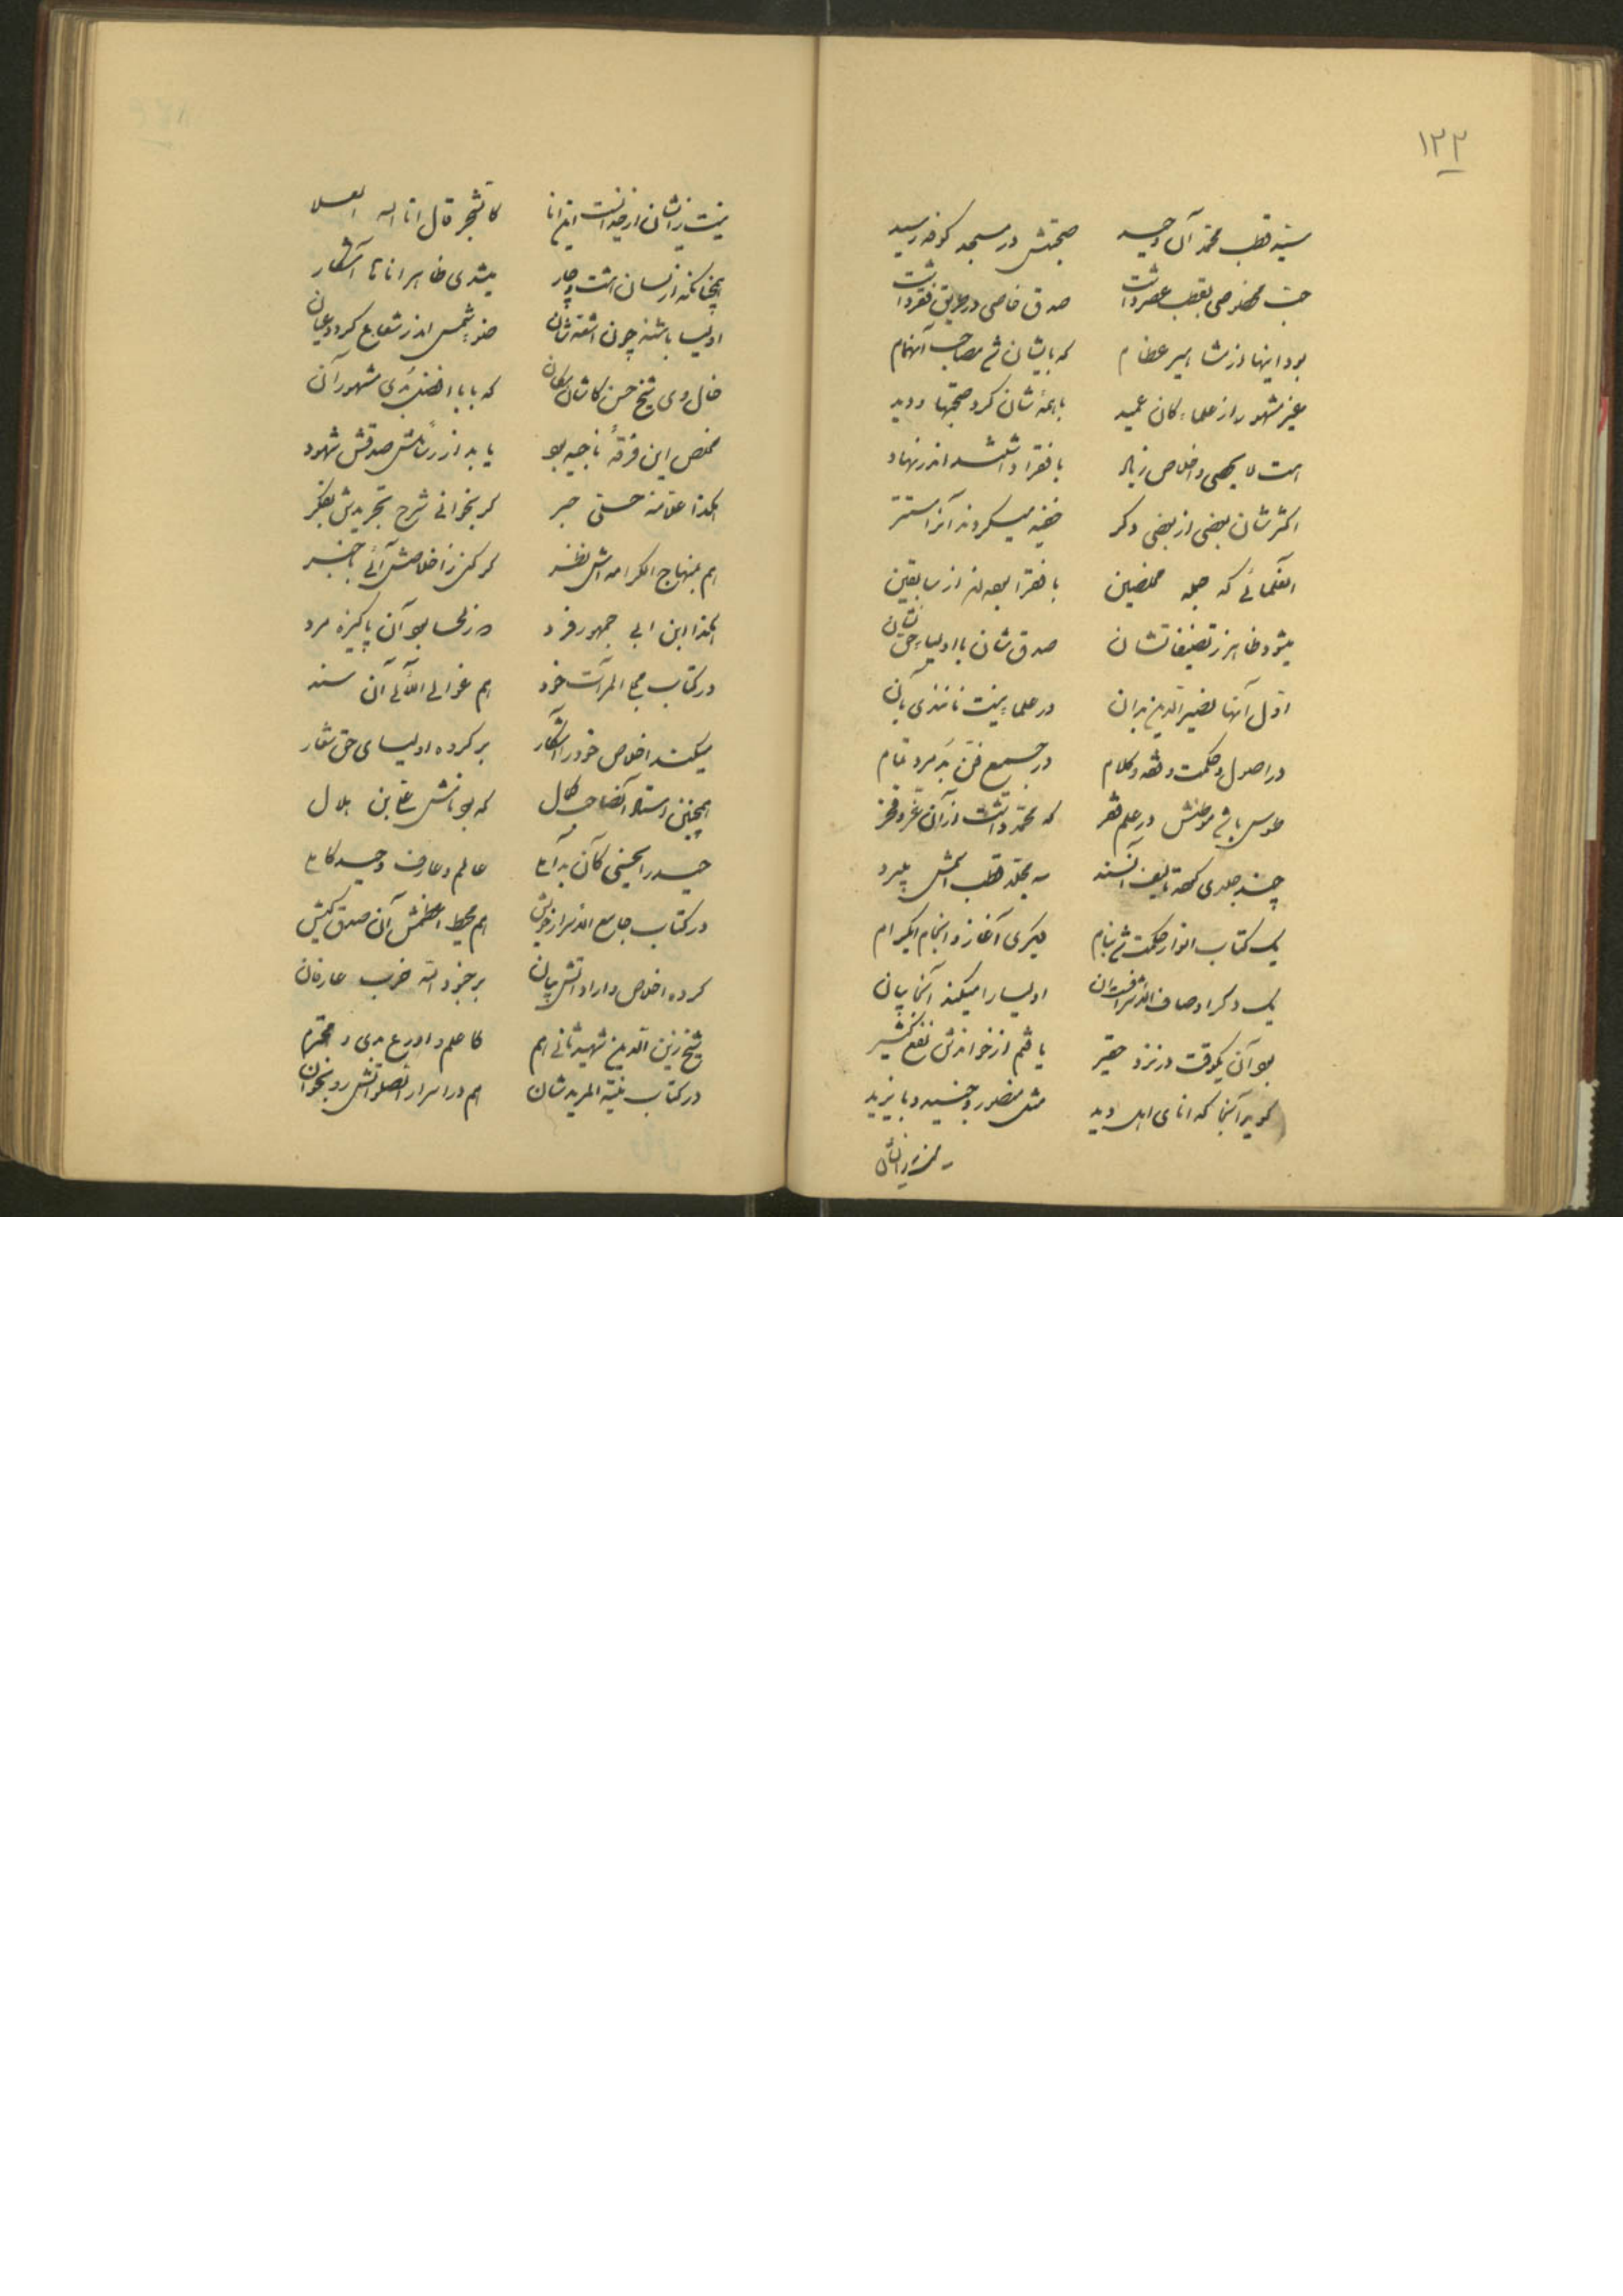 ۱۳۳
سید قطب محمد آن وحید صحبتش در مسجد کوفه رسید
حب مخصوصی بقطب عصر داشت صدق خاصی در طریق فقر داشت
بود اینها از مشاهیر عظام که بایشان شد مصاحب آنهمام
غیر مشهور از علماء کان عمید با همه‌شان کرد صحبتها و دید
هست لا یحصی و اخلاص زیاد با فقرا داشتند اندر نهاد
اکثرشان بعضی از بعضی دکر خفیه میکردند آنرا مستتر
العلمائی که جمله مخلصین با فقرا بوده‌اند از سابقین
میشود ظاهر ز تصنیفاتشان صدق شان با اولیاء حق نشان
اول آنها نصیر الدین بدان در علماء نیست مانندی بآن
در اصول و حکمت و فقه و کلام در جمیع فن بد مرد تمام
طوسی باشد موطنش در علم فقر که محمد داشت از آن عز و فخر
چند جلدی کرده تالیف آنسند به مجلد قطب اسمش
یک کتاب انوار حکمت شد بنام دیکری آغاز و انجام ایکرام
یک دکر اوصاف الاشراف بدان اولیا را میکند آنجا بیان
بود آن یکوقت در نزد حقیر یافتم از خواندنش نفع کثیر
کوید آنجا که انای اهل دید مثل منصور و جنید و بایزید
نیست زایشان از خدا است این انا کالشجر قال انا الله العلا
همچنانکه از لسان هشت و چار میشدی ظاهر اناها آشکار
اولیا باشند چون اشعه‌شان ضوء شمس اندر شعاع کردد عیان
خال وی شیخ حسن کاشان مکان که بابا افضل بدی مشهور آن
مخلص این فرقهٔ ناجیه بود یابد از صدقش شهود
هکذا علامه حلی حبر کر بخوانی شرح تجریدش بفکر
هم بمنهاج الکرامه‌اش نظر کر کنی ز اخلاصش آئی باخبر
هکذا ابن ابی جمهور فرد در لحسا بود آن پاکیزه مرد
در کتاب مجلی المرآت خود هم غوالی اللآلی آن سند
میکند اخلاص خود را آشکار بر کروه اولیای حق شعار
همچنین استاد آنصاحب کمال که بود نامش علی بن هلال
حیدر الحسینی کآن بد آملی عالم و عارف وحید کاملی
در کتاب جامع الاسرار خویش هم محیط اعظمش آن صدق کیش
کرده اخلاص و ارادتش بیان بر جنود الله حزب عارفان
شیخ زین الدین شهید ثانی هم کاعلم و اورع بدی و محترم
در کتاب منیة المریدشان هم در اسرار الصلواتش رو بخوان